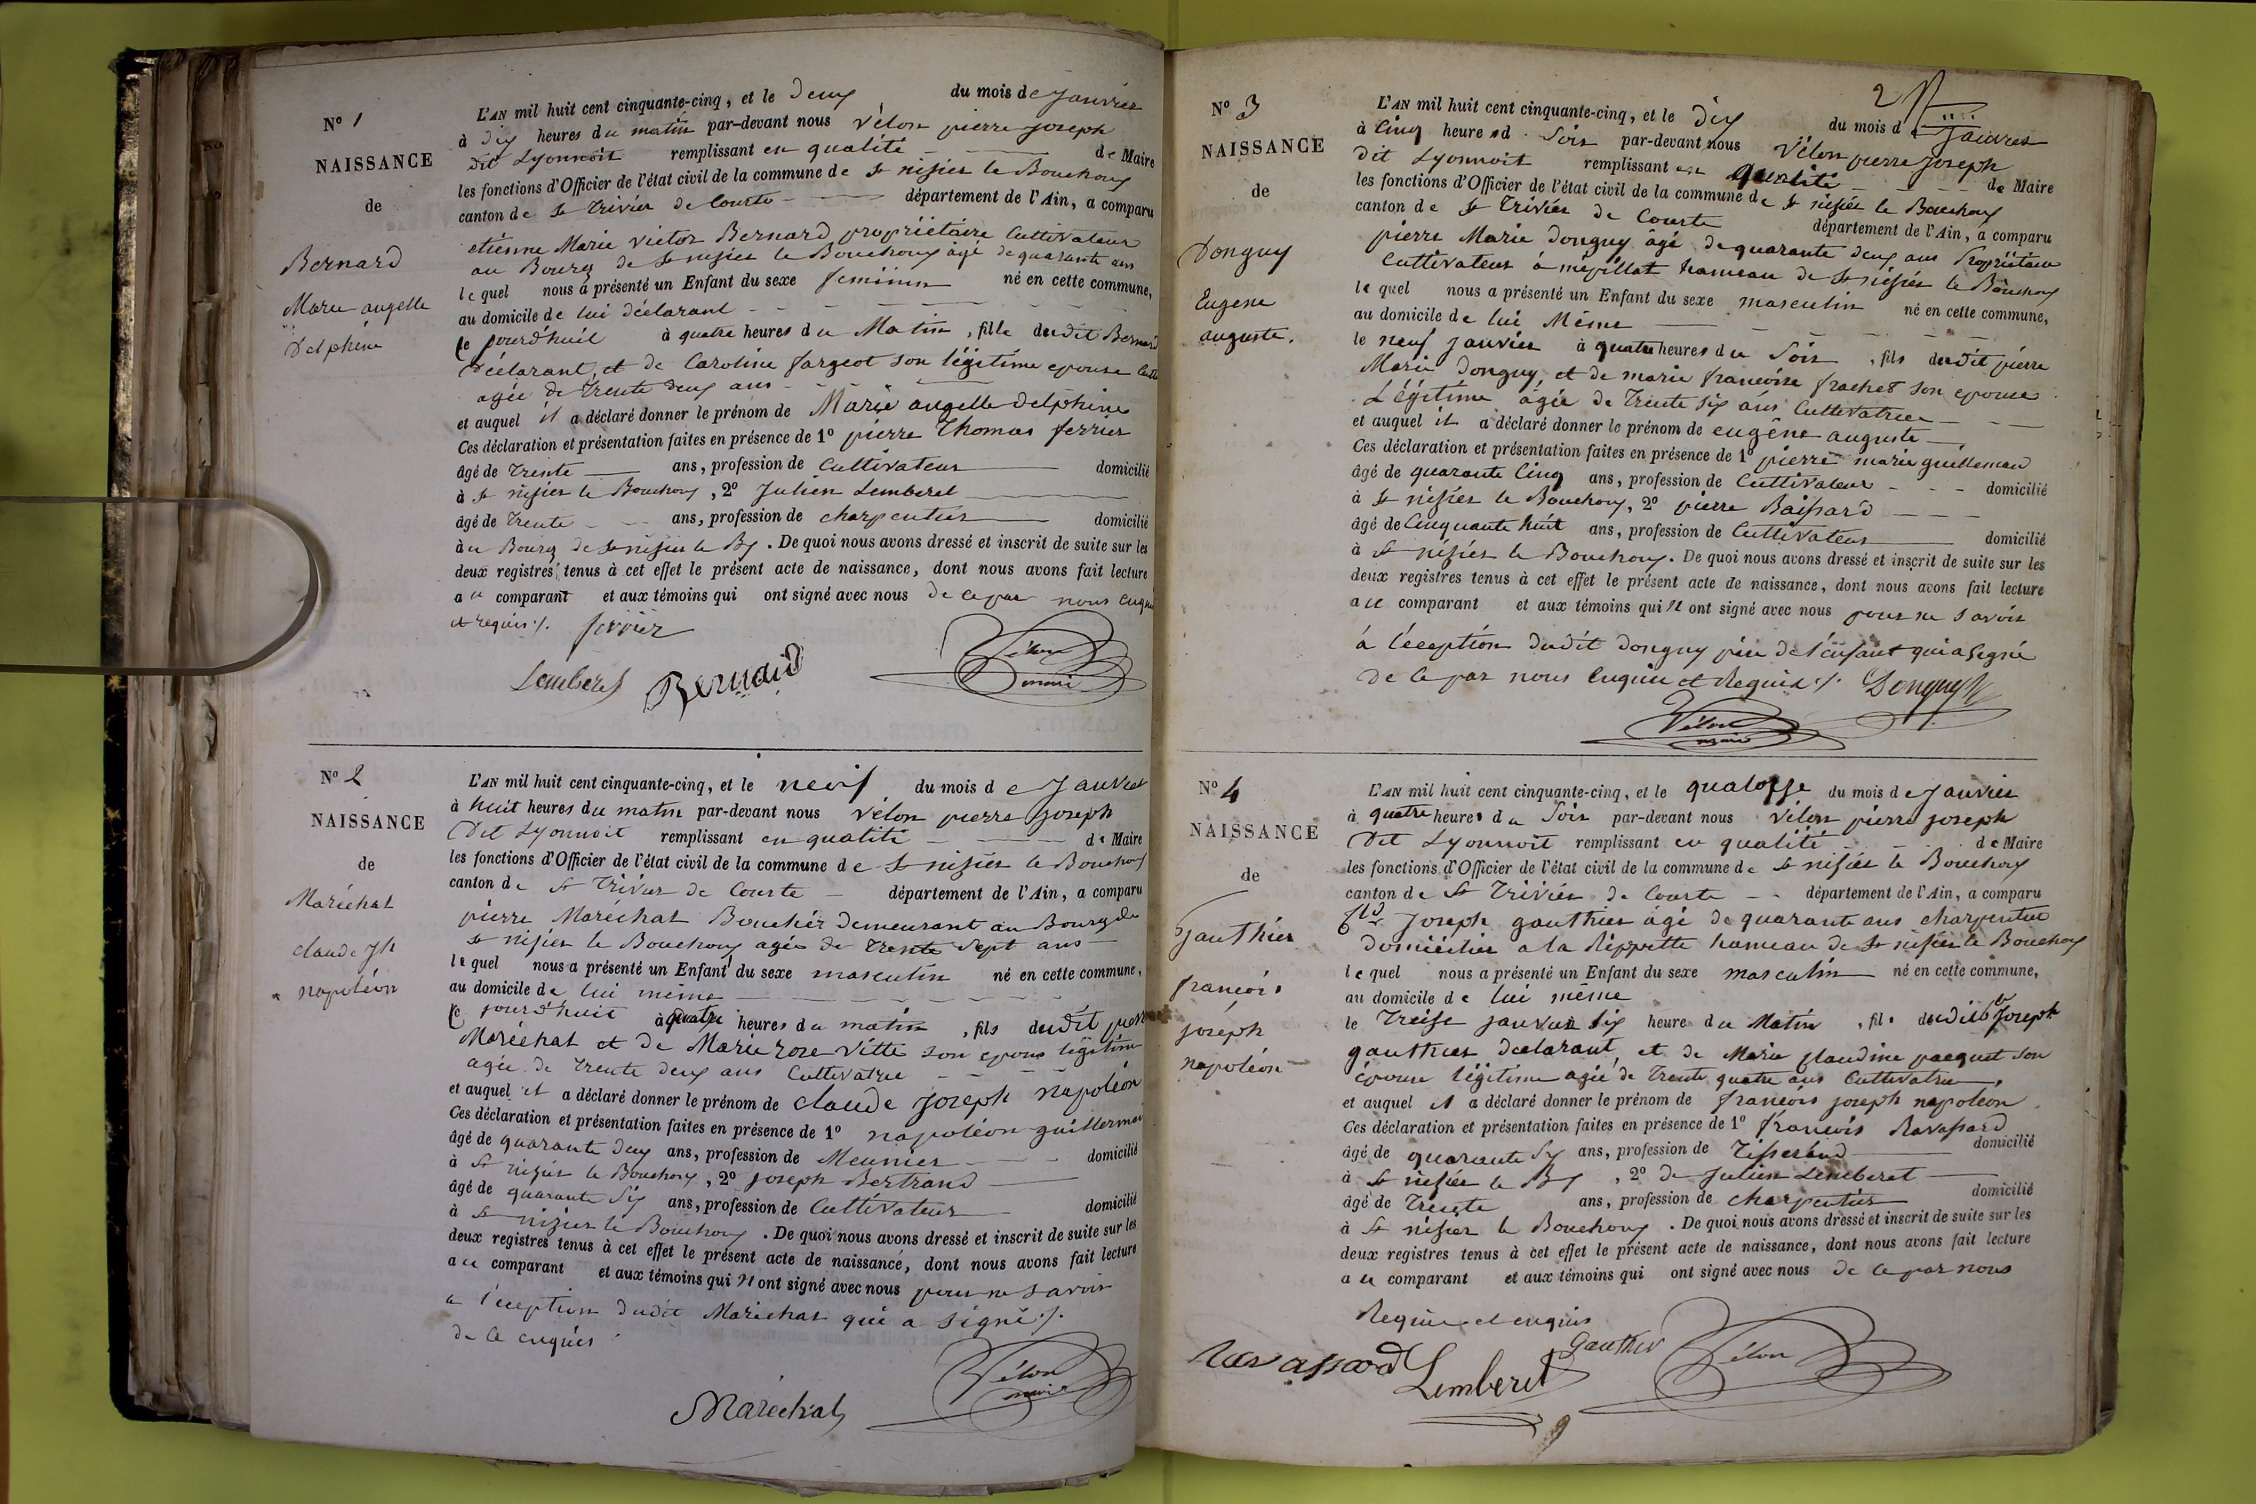 N° 1
NAISSANCE
de
Bernard
Marie angelle
Delphine
L'AN mil huit cent cinquante-cinq, et le deux du mois de Janvier
à dix heures du matin par-devant nous Vélon pierre joseph
dit Lyonnoit remplissant en qualité de Maire
les fonctions d'Officier de l'état civil de la commune de St nisier le Bouchoux
canton de St Trivier de Courte département de l'Ain, a comparu
etienne Marie victor Bernard propriétaire Cultivateur
au Bourg de St nisier le Bouchoux âgé de quarante ans
lequel nous a présenté un Enfant du sexe feminin né en cette commune,
au domicile de lui déclarant
le jourd'huit à quatre heures du Matin, fille dudit Bernard
Déclarant, et de Caroline fargeot son légitime epouse
agée de trente deux ans
et auquel il a déclaré donner le prénom de Marie angelle delphine
Ces déclaration et présentation faites en présence de 1° pierre Thomas ferrier
âgé de trente ans, profession de Cultivateur domicilié
à St nisier le Bouchoux, 2° Julien Lemberet
âgé de trente ans, profession de charpentier domicilié
au Bourg de St nisier le Bx. De quoi nous avons dressé et inscrit de suite sur les
deux registres tenus à cet effet le présent acte de naissance, dont nous avons fait lecture
au comparant et aux témoins qui ont signé avec nous de ce par nous enquis
et requis ./. ferrier
Lemberet Bernard Vélon
maire
N° 2
NAISSANCE
de
Maréchat
claude jh
napoléon
L'AN mil huit cent cinquante-cinq, et le neuf du mois de Janvier
à huit heures du matin par-devant nous Vélon pierre joseph
Dit Lyonnoit remplissant en qualité de Maire
les fonctions d'Officier de l'état civil de la commune de St nisier le Bouchoux
canton de St Trivier de Courte département de l'Ain, a comparu
pierre Maréchat Boucher demeurant au Bourg de
St nisier le Bouchoux agée de trente sept ans
lequel nous a présenté un Enfant du sexe masculin né en cette commune,
au domicile de lui même
le jourd'huit à quatre heures du matin, fils dudit pierre
Maréchat et de Marie rose Vitte son epouse légitime
agée de trente deux ans Cultivatrice
et auquel il a déclaré donner le prénom de claude joseph napoléon
Ces déclaration et présentation faites en présence de 1° napoléon
âgé de quarante deux ans, profession de Meunier domicilié
à St nisier le Bouchoux, 2° joseph Bertrand
âgé de quarante six ans, profession de Cultivateur domicilié
à St nizier le Bouchoux. De quoi nous avons dressé et inscrit de suite sur les
deux registres tenus à cet effet le présent acte de naissance, dont nous avons fait lecture
au comparant et aux témoins qui n ont signé avec nous pour ne savoir
a l'éception dudit Maréchat qui a signé ./.
de ce enquis
Maréchal Vélon
maire
2
N° 3
NAISSANCE
de
Donguy
Eugene
auguste.
L'AN mil huit cent cinquante-cinq, et le dix du mois de Janvier
à Cinq heures d Soir par-devant nous Vélon pierre joseph
dit Lyonnoit remplissant en qualité de Maire
les fonctions d'Officier de l'état civil de la commune de St nisier le Bouchoux
canton de St Trivier de Courte département de l'Ain, a comparu
pierre Marie donguy âgé de quarante deux ans Propriétaire
Cultivateur à mépillat hameau de St nisier le Bouchoux
lequel nous a présenté un Enfant du sexe masculin né en cette commune,
au domicile de lui Même
le neuf janvier à quatre heures du Soir, fils dudit pierre
Marie donguy, et de marie francoise frachet son epouse
Légitime agée de trente six ans Cultivatrice
et auquel il a déclaré donner le prénom de eugène auguste
Ces déclaration et présentation faites en présence de 1° pierre marie guillemaud
âgé de quarante Cinq ans, profession de Cultivateur domicilié
à St nisier le Bouchoux, 2° pierre Baissard
âgé de Cinquante huit ans, profession de Cultivateur domicilié
à St nisier le Bouchoux. De quoi nous avons dressé et inscrit de suite sur les
deux registres tenus à cet effet le présent acte de naissance, dont nous avons fait lecture
au comparant et aux témoins qui n ont signé avec nous pour ne savoir
à l'éception dudit donguy père de l'enfant qui a signé
de ce par nous enquis et Requis ./. Donguy
Vélon
maire
N° 4
NAISSANCE
de
Gauthier
francois
joseph
napoléon
L'AN mil huit cent cinquante-cinq, et le quatorze du mois de Janvier
à quatre heures du Soir par-devant nous Vélon pierre joseph
Dit Lyonnoit remplissant en qualité de Maire
les fonctions d'Officier de l'état civil de la commune de St nisier le Bouchoux
canton de St Trivier de Courte département de l'Ain, a comparu
joseph gauthier âgé de quarante ans charpentier
domicilier a la Rippette hameau de St nisier le Bouchoux
lequel nous a présenté un Enfant du sexe masculin né en cette commune,
au domicile de lui même
le Treize janvier six heure du Matin, fils dudit joseph
gauthier declarant, et de Marie claudine pacquet son
épouse légitime agée de trente quatre ans Cultivatrice
et auquel il a déclaré donner le prénom de francois joseph napoléon
Ces déclaration et présentation faites en présence de 1° francois Ravassard
âgé de quarante six ans, profession de Tisserand domicilié
à St nisier le Bx, 2° de Julien Lemberet
âgé de Trente ans, profession de charpentier domicilié
à St nisier le Bouchoux. De quoi nous avons dressé et inscrit de suite sur les
deux registres tenus à cet effet le présent acte de naissance, dont nous avons fait lecture
au comparant et aux témoins qui ont signé avec nous de ce par nous
Requis et enquis
Ravassard Lemberet Gauthier Vélon